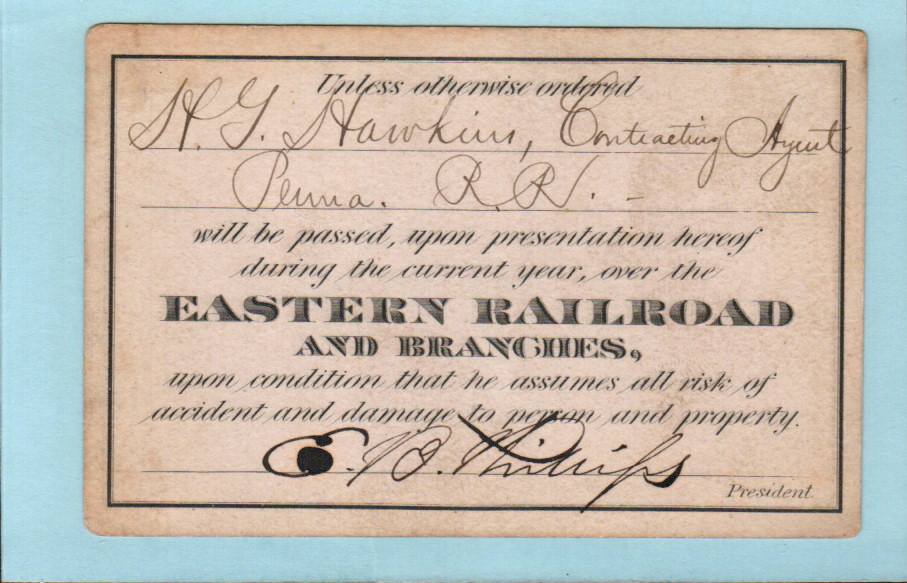 Unless otherwise ordered
H. G. Hawkins, Contracting Agent
Penna. R. R. -
will be passed, upon presentation hereof
during the current year, over the
EASTERN RAILROAD
AND BRANCHES,
upon condition that he assumes all risk of
accident and damage to person and property.
E. B. Phillips
President